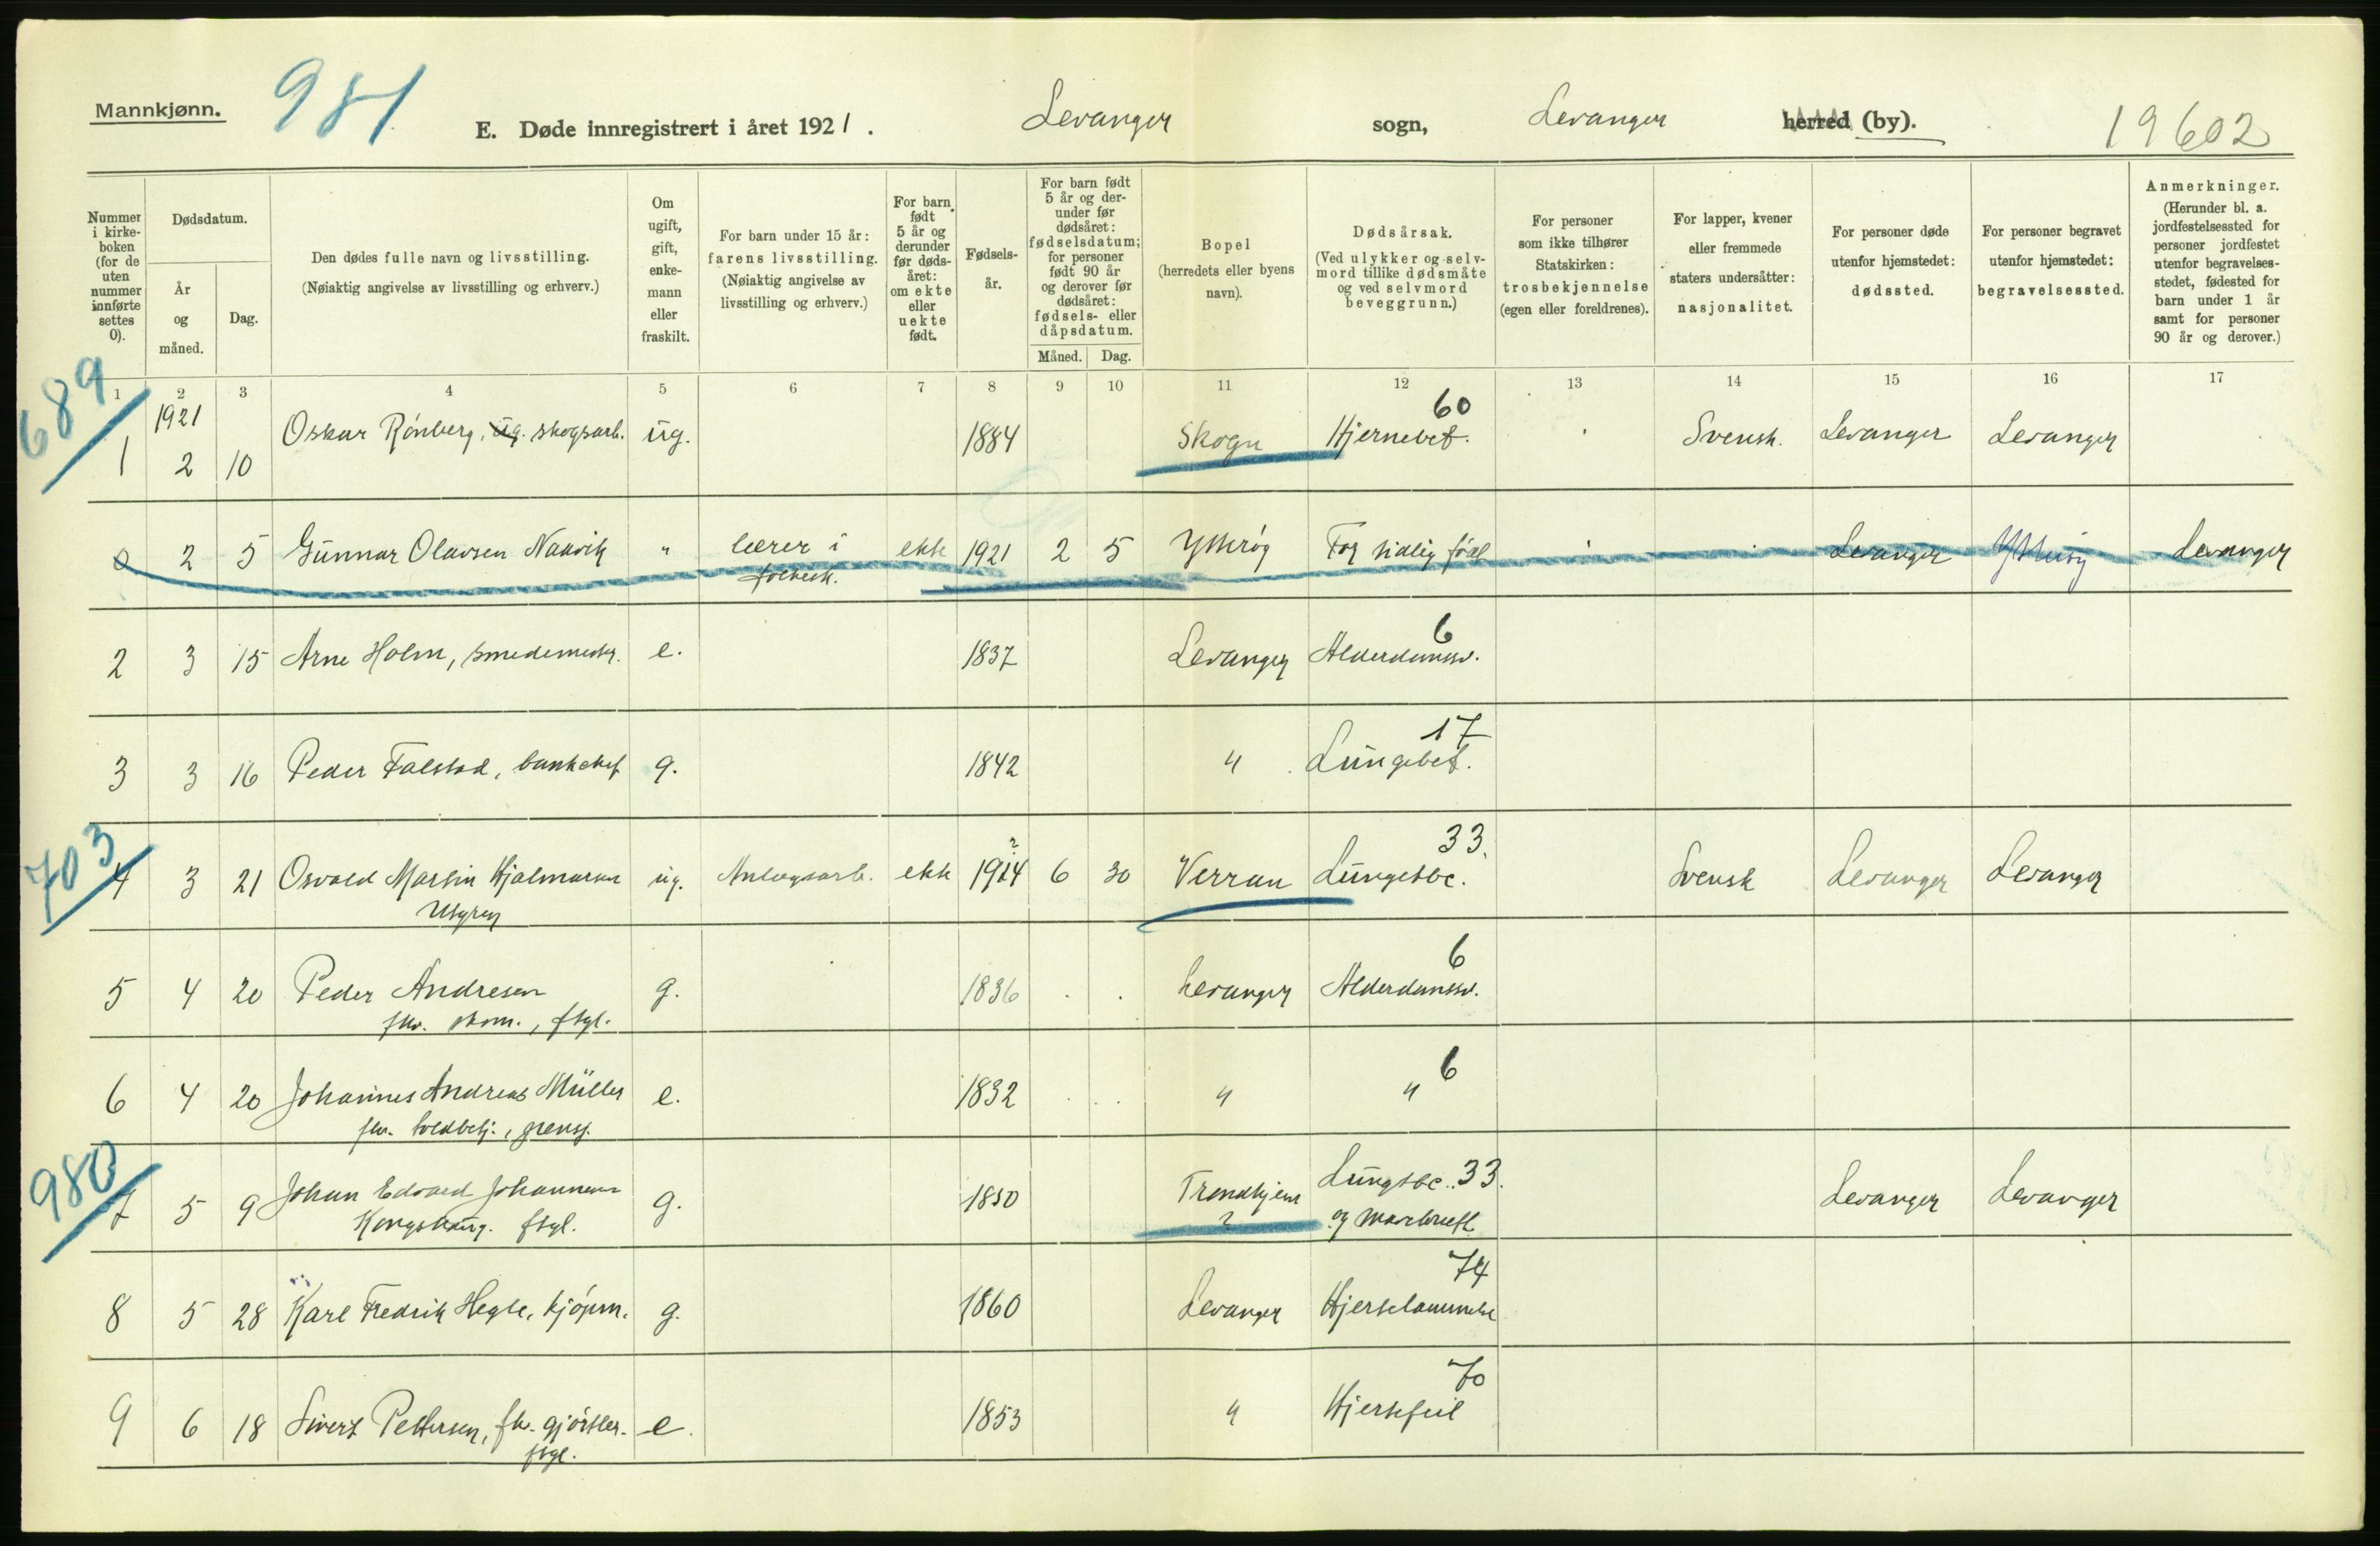 Mannkjønn.
981
E. Døde innregistrert i året 1921.
Levanger sogn, Levanger herred (by).
19602
Nummer i kirkeboken (for de uten nummer innførte settes 0).
Dødsdatum.
År og måned.
Dag.
Den dødes fulle navn og livsstilling.
(Nøiaktig angivelse av livsstilling og erhverv.)
Om ugift, gift, enkemann eller fraskilt.
For barn under 15 år: farens livsstilling.
(Nøiaktig angivelse av livsstilling og erhverv.)
For barn født 5 år og derunder før dødsåret: om ekte eller uekte født.
Fødselsår.
For barn født 5 år og derunder før dødsåret: fødselsdatum; for personer født 90 år og derover før dødsåret: fødsels- eller dåpsdatum.
Måned. Dag.
Bopel
(herredets eller byens navn).
Dødsårsak.
(Ved ulykker og selvmord tillike dødsmåte og ved selvmord beveggrunn.)
For personer som ikke tilhører Statskirken: trosbekjennelse (egen eller foreldrenes).
For lapper, kvener eller fremmede staters undersåtter: nasjonalitet.
For personer døde utenfor hjemstedet: dødssted.
For personer begravet utenfor hjemstedet: begravelsessted.
Anmerkninger.
(Herunder bl. a. jordfestelsessted for personer jordfestet utenfor begravelsesstedet, fødested for barn under 1 år samt for personer 90 år og derover.)
1 2 3 4 5 6 7 8 9 10 11 12 13 14 15 16 17
689
1921
60
1 2 10 Oskar Rönberg, ug. skogsarb. ug. 1884 Skogn Hjernebet. Svensk. Levanger Levanger
0 2 5 Gunnar Olavsen Naavik " lærer i ekte 1921 2 5 Ytterøy For tidlig född Levanger Ytterøy Levanger
6
2 3 15 Arne Holm, smedemestr. e. 1837 Levanger Alderdomssv.
17
3 3 16 Peder Falstad, bankchef g. 1842 " Lungebet.
703
33.
4 3 21 Osvald Martin Hjalmarsen ug. Anlægsarb. ekte 1914 ? 6 30 Verran Lungetbc. Svensk Levanger Levanger
6
5 4 20 Peder Andresen g. 1836 Levanger Alderdomssv.
fhv. skom., fsgl.
6
6 4 20 Johannes Andreas Müller e. 1832 " "
fhv. toldbetj., pensj.
980
7 5 9 Johan Edvard Johannesen g. 1850 Trondhjem Lungtbc. 33. Levanger Levanger
Kongshaug. fsgl. ? og
74
8 5 28 Karl Fredrik Hegle, kjöpm. g. 1860 Levanger Hjertelammelse
70
9 6 18 Sivert Pettersen, fhv. gjörtler. e. 1853 " Hjertefeil
fsgl.